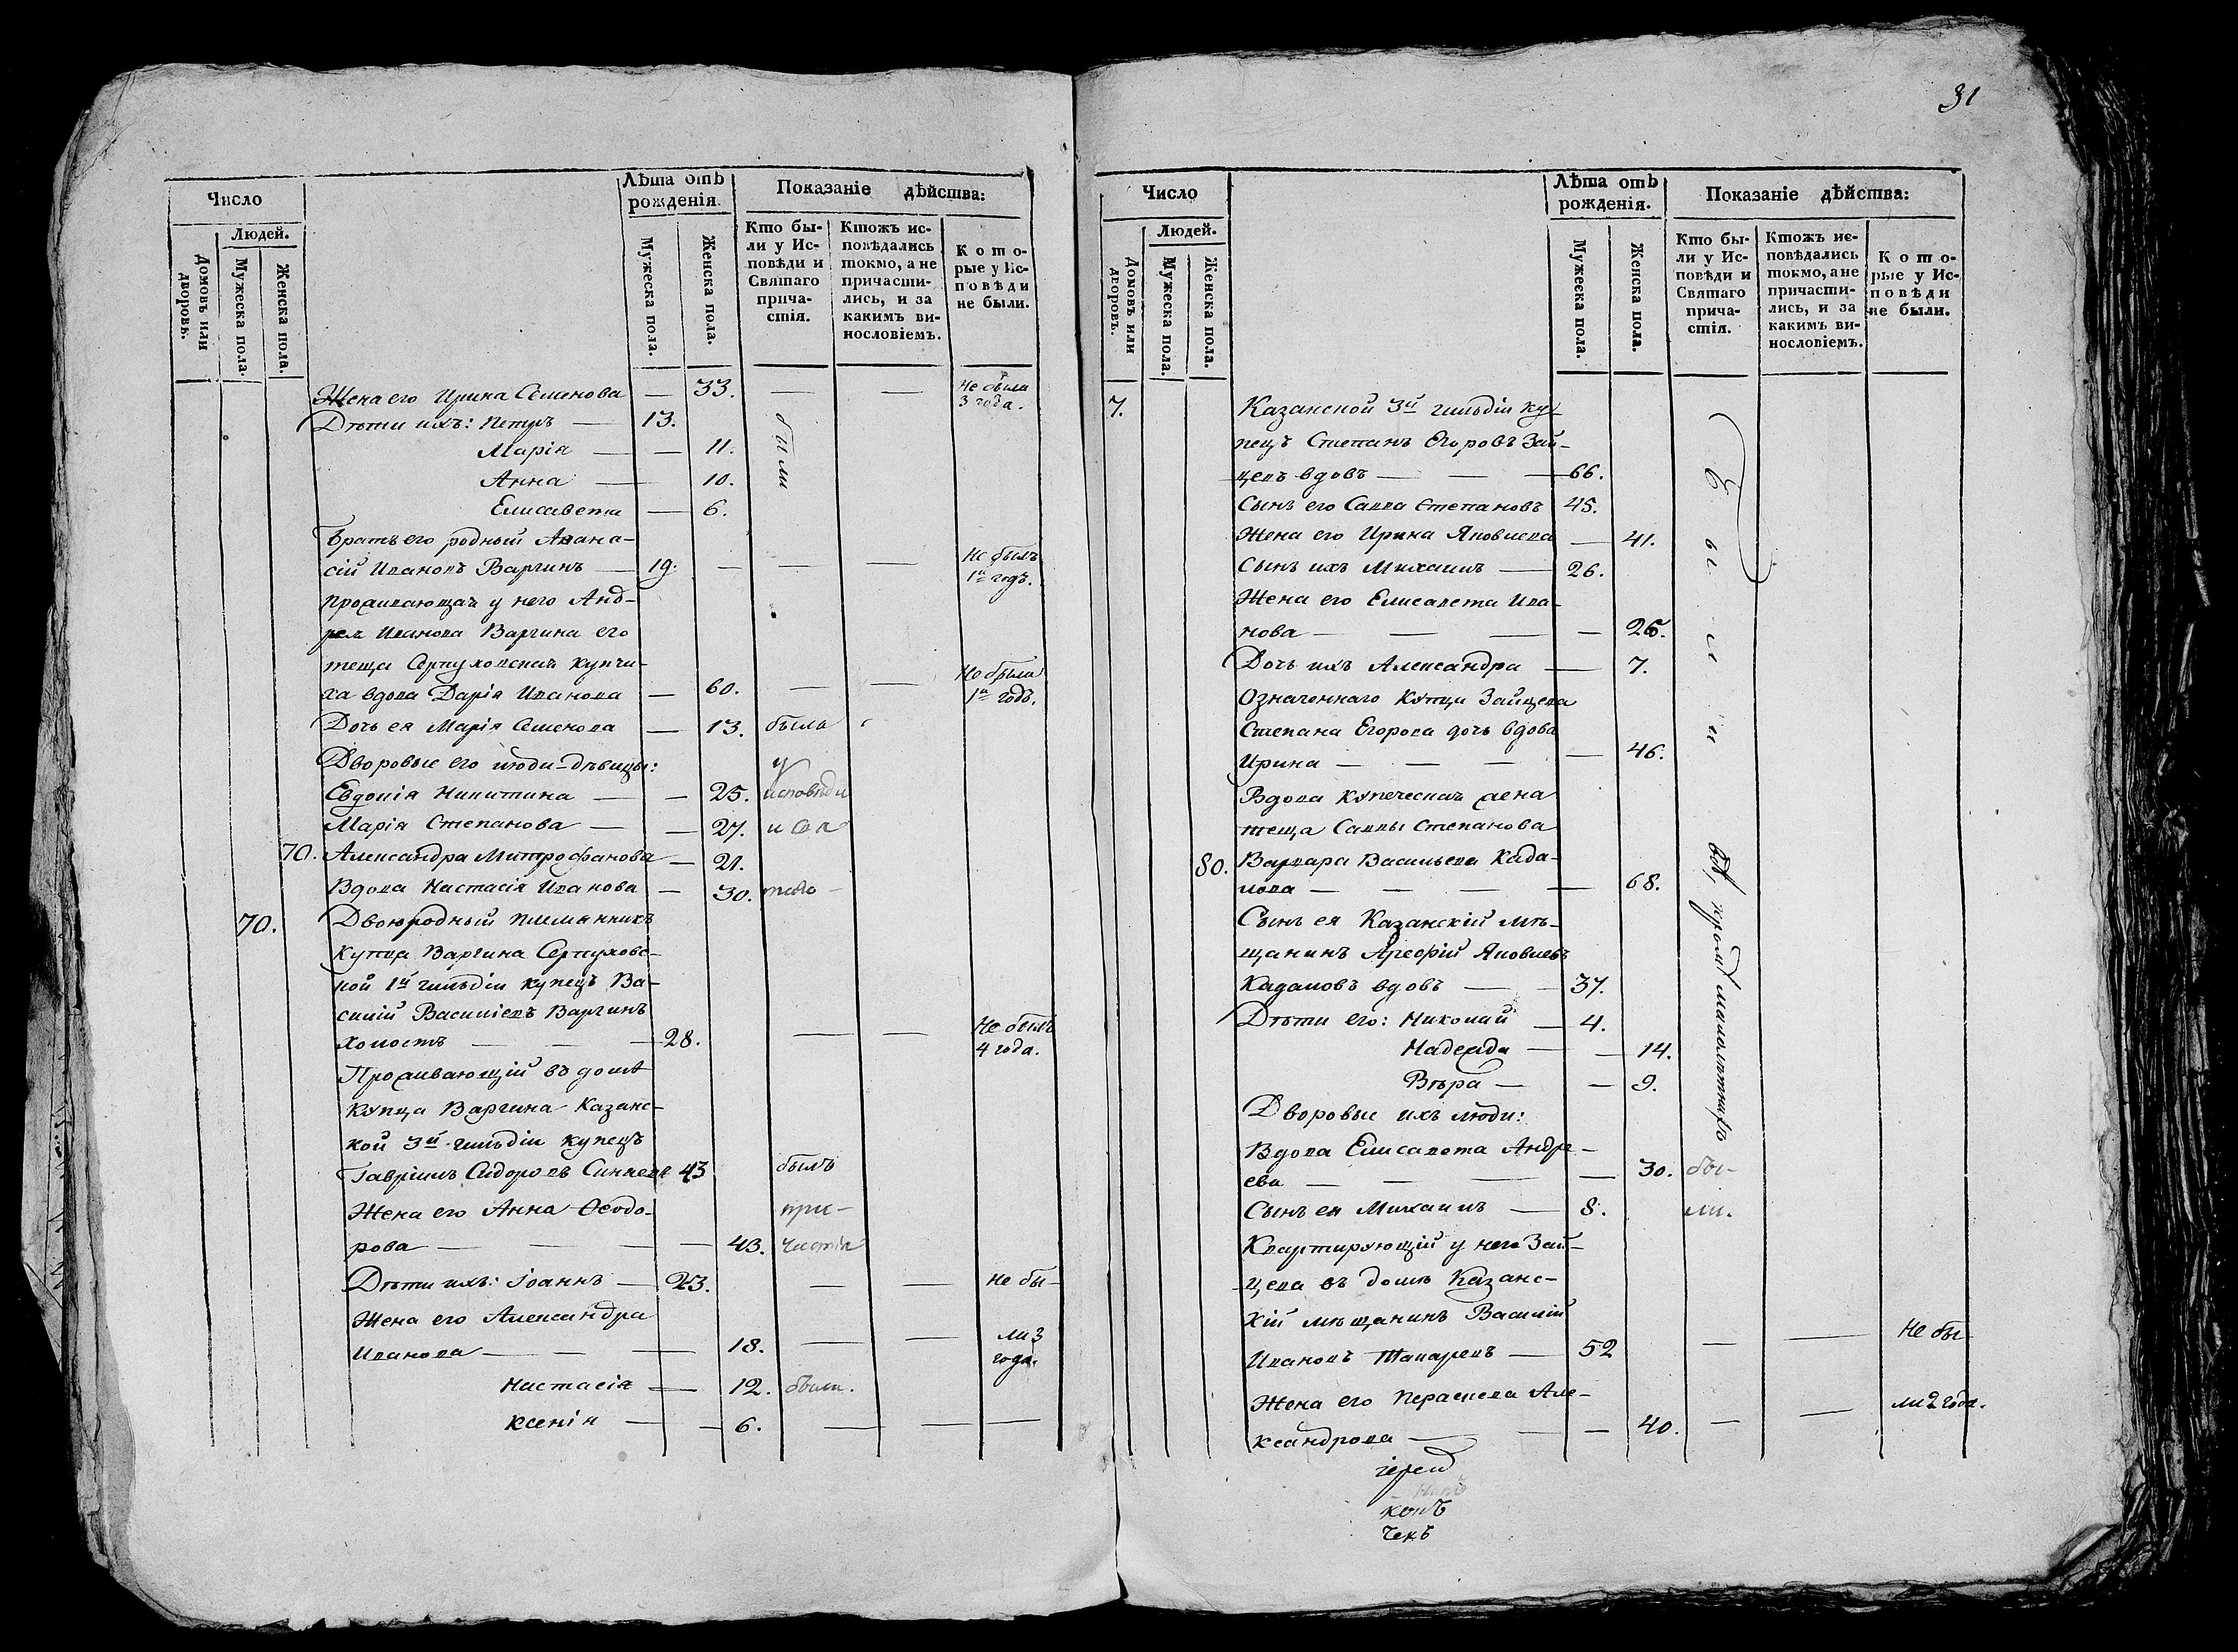 Число
Людей.
Домовъ или дворовъ.
Мужеска пола.
Женска пола.
Лѣта отъ рожденія.
Мужеска пола.
Женска пола.
Показаніе дѣйства:
Кто бы-
ли у Ис-
повѣди и
Святаго
прича-
стія.
Ктожъ ис-
повѣдались
токмо, а не
причасти-
лись, и за
какимъ ви-
нословіемъ.
К о т о-
рые у Ис-
п о в ѣ д и
не были.
Жена его Ирина Семенова — 33. — — Не была 3 года.
Дѣти ихъ: Петръ — 13. были
Марія — — 11.
Анна — 10.
Елисавета — 6.
Братъ его родный Афана-
сій Ивановъ Варгинъ — 19. — — — Не былъ 1й годъ.
Проживающая у него Анд-
рея Иванова Варгина его
теща Серпуховская купчи-
ха вдова Дарія Иванова — 60. — — Не была 1й годъ.
Дочь ея Марія Семенова — 13. была
Дворовые его люди-дѣвицы: у
Евдокія Никитина — — 25. исповѣди
Марія Степанова — — 27. и свя
70. Александра Митрофанова — 21.
Вдова Настасія Иванова — 30. таго –
70. Двоюродный племянникъ
купца Варгина Серпуховс-
кой 1й гильдіи купецъ Ва-
силій Василіевъ Варгинъ
холостъ — — — 28. — — Не былъ 4 года.
Проживающій въ домѣ
купца Варгина Казанс-
кой 3й гильдіи купецъ
Гавріилъ Сидоровъ 43 былъ
Жена его Анна Ѳеодо- при-
рова — — — — 43. частія
Дѣти ихъ: Іоаннъ — 23. — — Не бы-
Жена его Александра
Иванова — — — — 18. — — ли 3 года.
Настасія — 12. были.
Ксенія — — 6. — — —
31
Число
Людей.
Домовъ или дворовъ.
Мужеска пола.
Женска пола.
Лѣта отъ рожденія.
Мужеска пола.
Женска пола.
Показаніе дѣйства:
Кто бы-
ли у Ис-
повѣди и
Святаго
прича-
стія.
Ктожъ ис-
повѣдались
токмо, а не
причасти-
лись, и за
какимъ ви-
нословіемъ.
К о т о-
рые у Ис-
п о в ѣ д и
не были.
7. Казанской 3й гильдіи ку-
пецъ Степанъ Егоровъ Зай-
цевъ вдовъ — — — 66.
Сынъ его Савва Степановъ 45.
Жена его Ирина Яковлева — 41.
Сынъ ихъ Михаилъ — 26.
Жена его Елисавета Ива-
нова — — — — 26.
Дочь ихъ Александра — 7.
Означеннаго купца Зайцева
Степана Егорова дочь вдова
Ирина — — — — 46.
Вдова купеческая жена
теща Саввы Степанова
80. Варвара Васильева Када-
лова — — — — 68.
Сынъ ея Казанскій мѣ-
щанинъ Яковлевъ
Кадаловъ вдовъ — — 37.
Дѣти его: Николай — 4.
Надежда — — 14.
Вѣра — — 9.
кромѣ малолѣтнихъ
Дворовые ихъ люди:
Вдова Елисавета Андре-
ева — — — — 30. бы-
Сынъ ея Михаилъ — 8. ли.
Квартирующій у него Зай-
цева въ домѣ Казанс-
кій мѣщанинъ Василій
Ивановъ — 52 — — Не бы-
Жена его Параскева Але-
ксандрова — — — 40. — — ли 2 года.